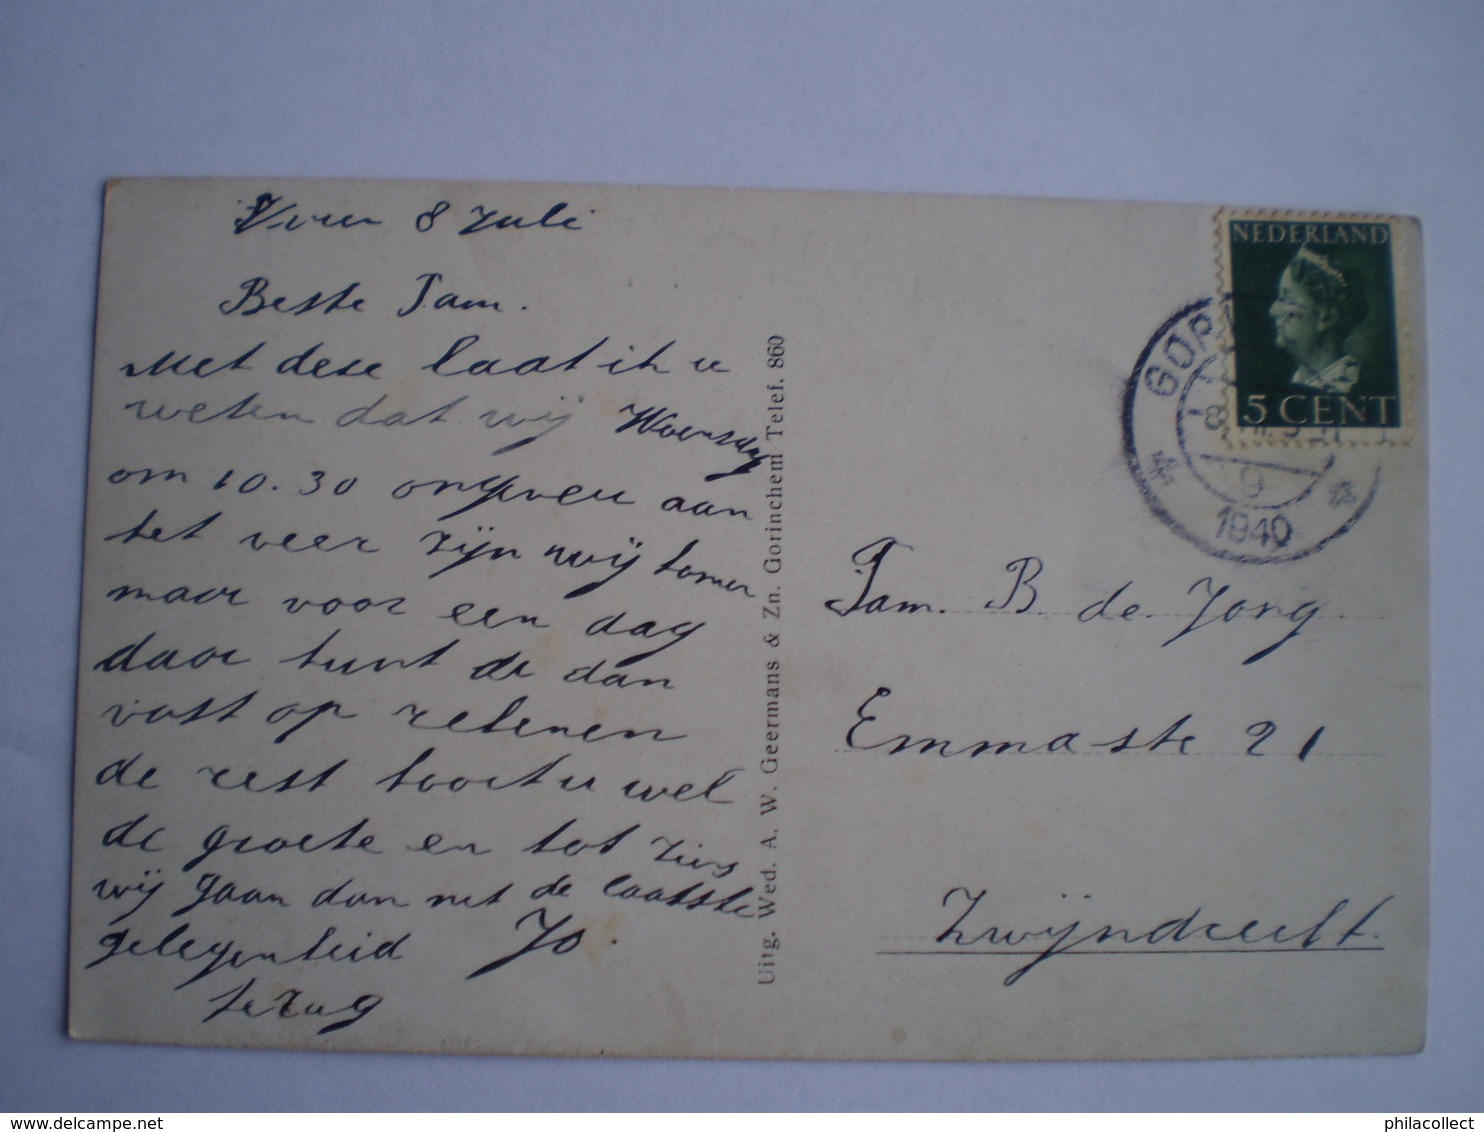 Vuren 8 Juli
Beste Fam.
Met deze laat ik u
weten dat wij Woensdag
om 10.30 ongeveer aan
het veer zijn wij komen
maar voor een dag
daar kunt de dan
vast op rekenen
de rest hoort u wel
de groete en tot ziens
wij gaan dan met de laatste
gelegenheid Jo.
terug
Uitg. Wed. A. W. Geermans & Zn. Gorinchem Telef. 860
NEDERLAND
5 CENT
GOR
8
1940
Fam. B. de Jong
Emmastr 21
Zwijndrecht.
philacollect